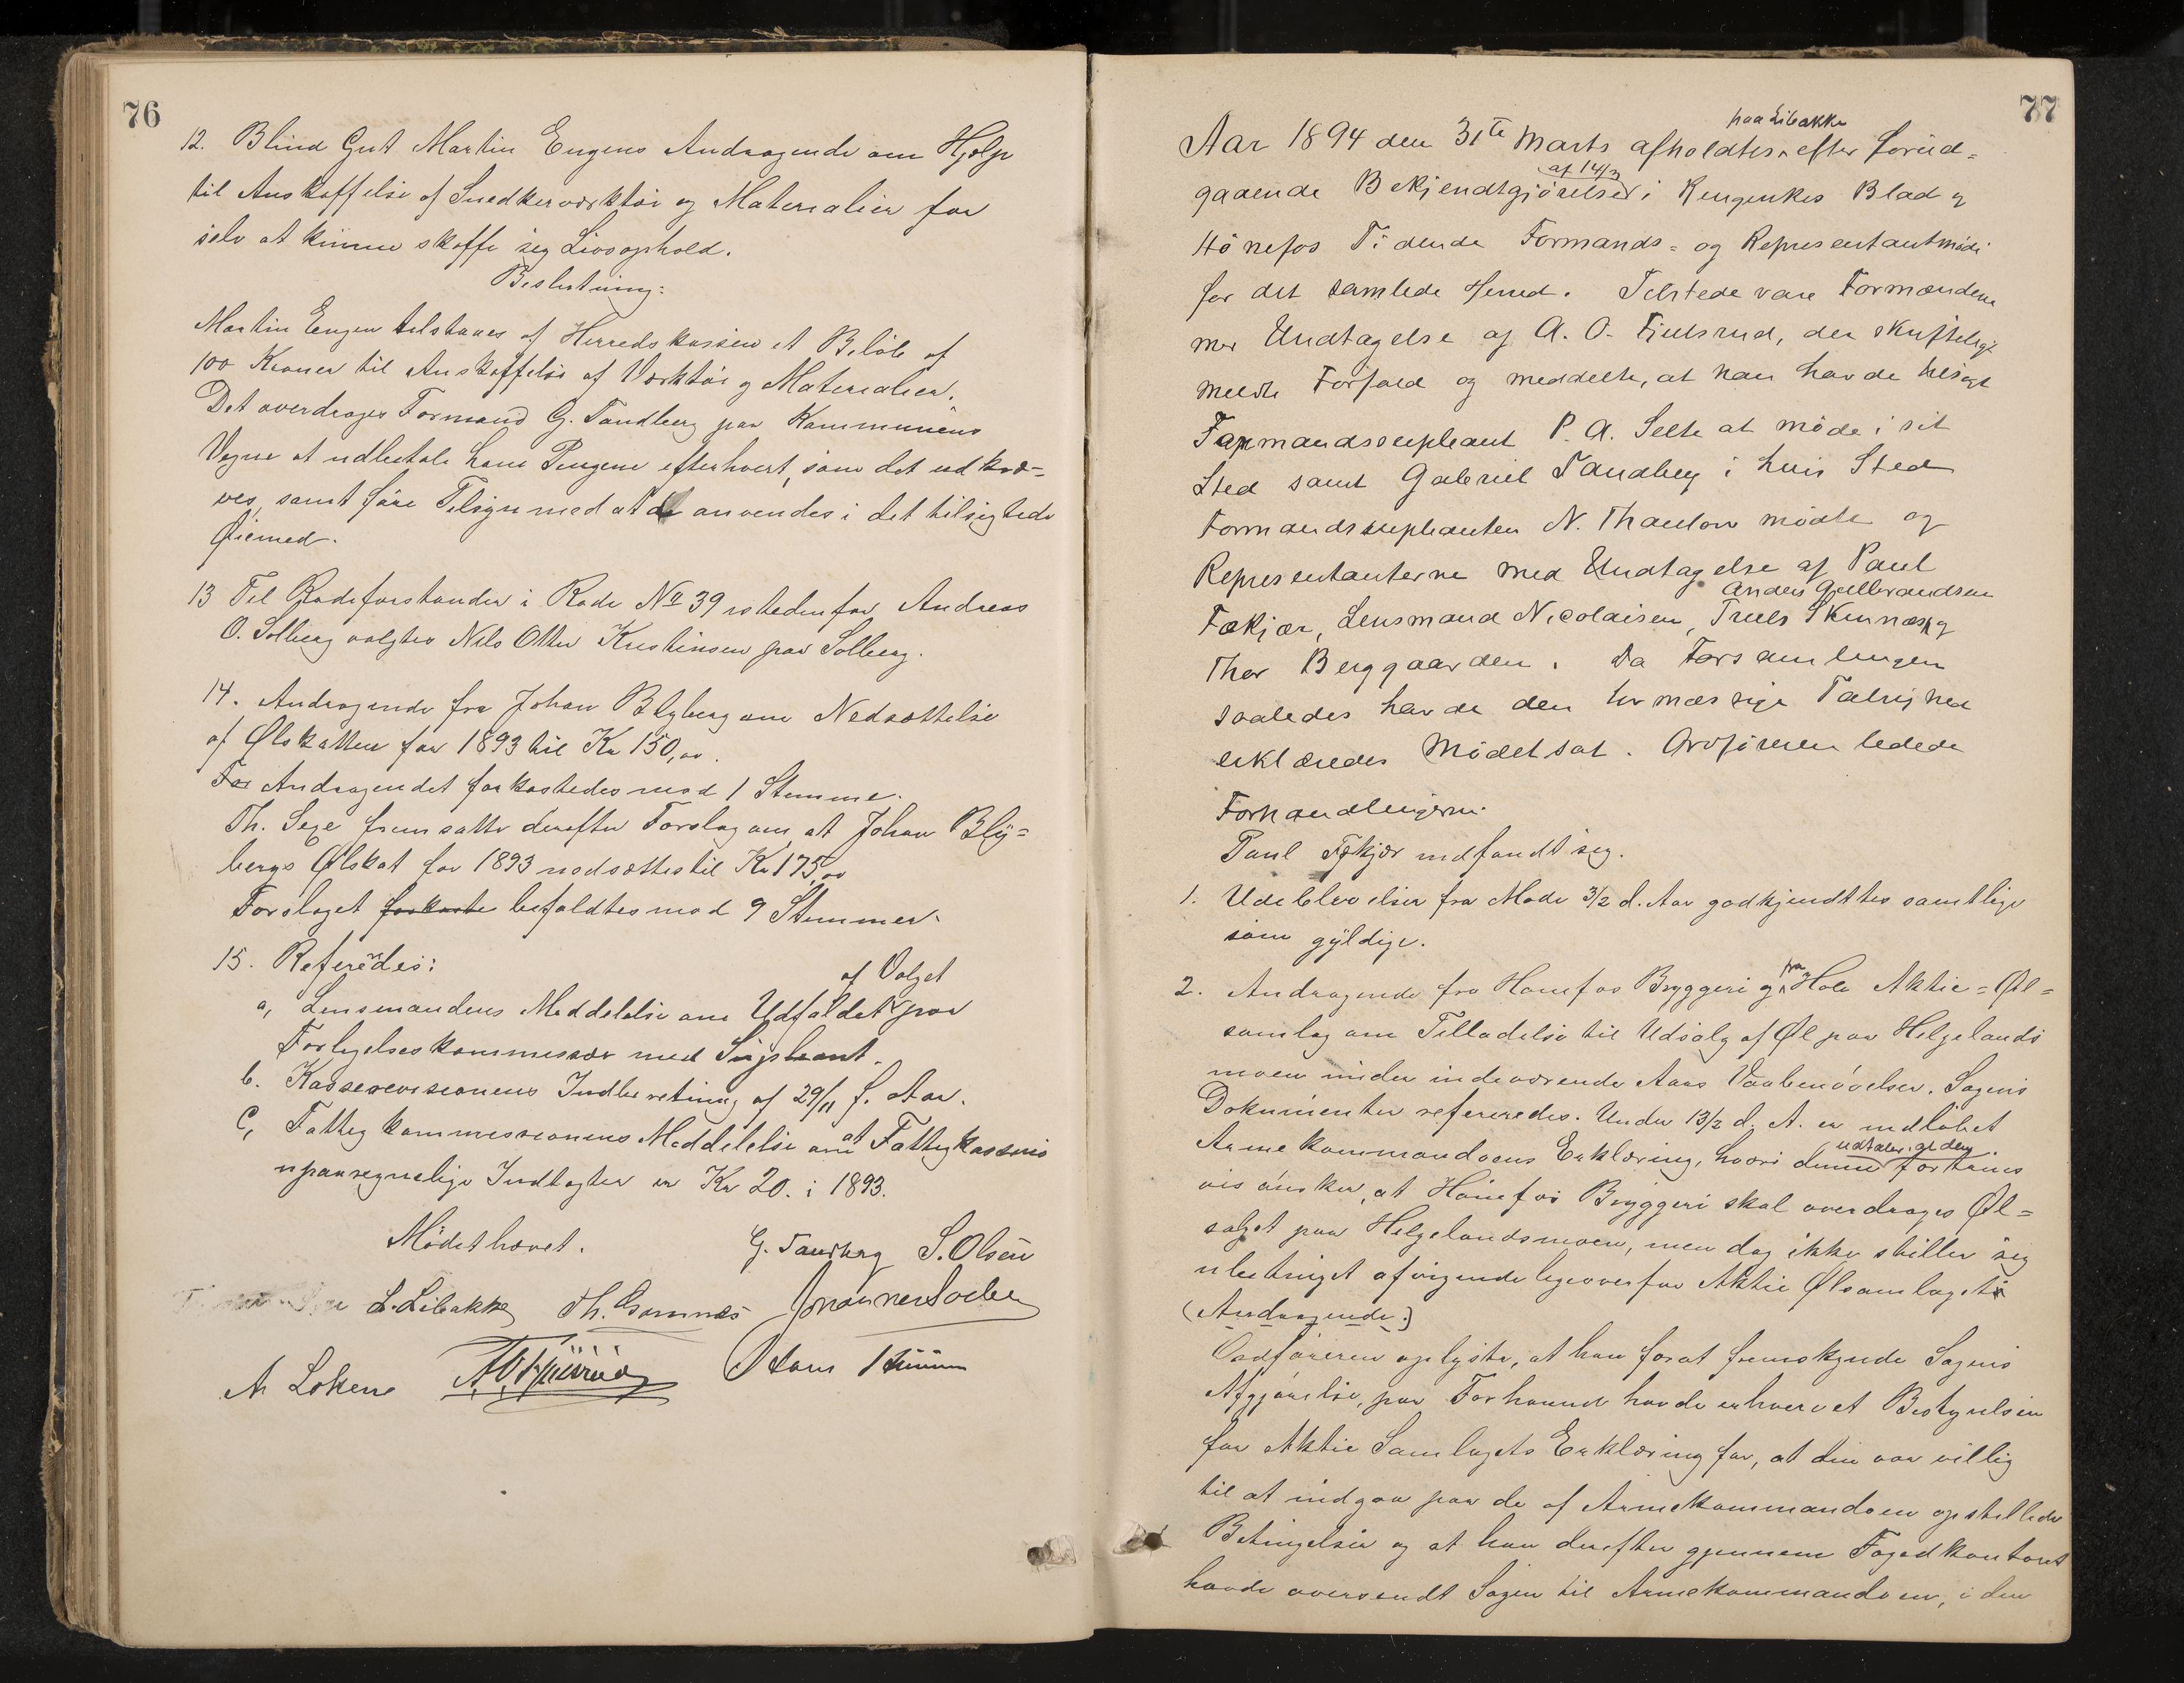 76
12. Blind Gut Martin Engens Andragende om Hjælp
til Anskaffelse af Snedkerværktøi og Materialier for
selv at kunne skaffe sig Livsophold.
Beslutning:
Martin Engen tilstaaes af Herredskassen et Beløb af
100 Kroner til Anskaffelse af Værktøi og Materialier.
Det overdrages Formand G. Tandberg paa Kommunens
Vegne at udbetale ham Pengene efterhvert, som det udkræ=
ves, samt føre Tilsyn med at de anvendes i det tilsigtede
Øiemed.
13 Til Rodeforstander i Rode No 39 istedenfor Andreas
O. Solberg valgtes Nils Otter Kristinsen paa Solberg.
14. Andragende fra Johan Blyberg om Nedsættelse
af Ølskatten for 1893 til Kr 150,00.
For Andragendet forkastedes mod 1 Stemme.
Th. Sexe fremsatte derefter Forslag om, at Johan Bly=
bergs Ølskat for 1893 nedsættes til Kr 175,00
Forslaget forkaste bifaldtes mod 9 Stemmer.
15. Refereredes:
a, Lensmandens Meddelelse om Udfaldet af Valget paa
Forligelseskommissær med Supleant.
b. Kasserevisionens Indberetning af 29/11 f. Aar.
C, Fattigkommissionens Meddelelse om at Fattigkassens
upaaregnelige Indtægter er Kr 20. i 1893.
Mødet hævet.
G. Tandberg S. Olsen
L. Libakke Th. Gomnæs Johannes Soelberg
A Løkene
77
Aar 1894 den 31te Marts afholdtes paa Libakke efter forud=
gaaende Bekjendtgjørelser af 14/3 i Ringerikes Blad og
Hønefos Tidende Formands= og Representantmøde
for det samlede Herred. Tilstede vare Formændene
med Undtagelse af A. O. Fjeldsrud, der skriftelig
meldte Forfald og meddelte, at han havde tilsagt
Formandssupleant P. A. Selte at møde i sit
Sted samt Gabriel Tandberg i hvis Sted
Formandssupleanten N. Thaulow mødte og
Representanterne med Undtagelse af Paul
Fækjær, Lensmand Nicolaisen, Anders Gulbrandsen Truls Skinnæs og
Thor Berggaarden. Da Forsamlingen
saaledes havde den lovmæssige Talrighed
erklæredes Mødet sat. Ordføreren ledede
Forhandlingerne.
Paul Fækjær indfandt sig.
1. Udeblevelser fra Møde 3/2 d. Aar godkjendttes samtlige
som gyldige.
2. Andragende fra Hønefos Bryggeri og fra Hole Aktie=Øl=
samlag om Tilladelse til Udsalg af Øl paa Helgelands
moen under indeværende Aars Vaabenøvelser. Sagens
Dokumenter refereredes. Under 13/2 d. A. er indløbet
Armekommandoens Erklæring, hvori denne udtaler, at den fortrins
vis ønsker, at Hønefos Bryggeri skal overdrages Øl=
salget paa Helgelandsmoen, men dog ikke stiller sig
ubetinget afvigende ligeoverfor Aktie Ølsamlagets
(Andragende.)
Ordføreren oplyste, at han forat fremskynde Sagens
Afgjørelse, paa Forhaand havde erhvervet Bestyrelsen
for Aktie Samlagets Erklæring for, at den var villig
til at indgaa paa de af Armekommandoen opstillede
Betingelser og at han derefter gjennem Fogedkontoret
havde oversendt Sagen til Armekommandoen, i den